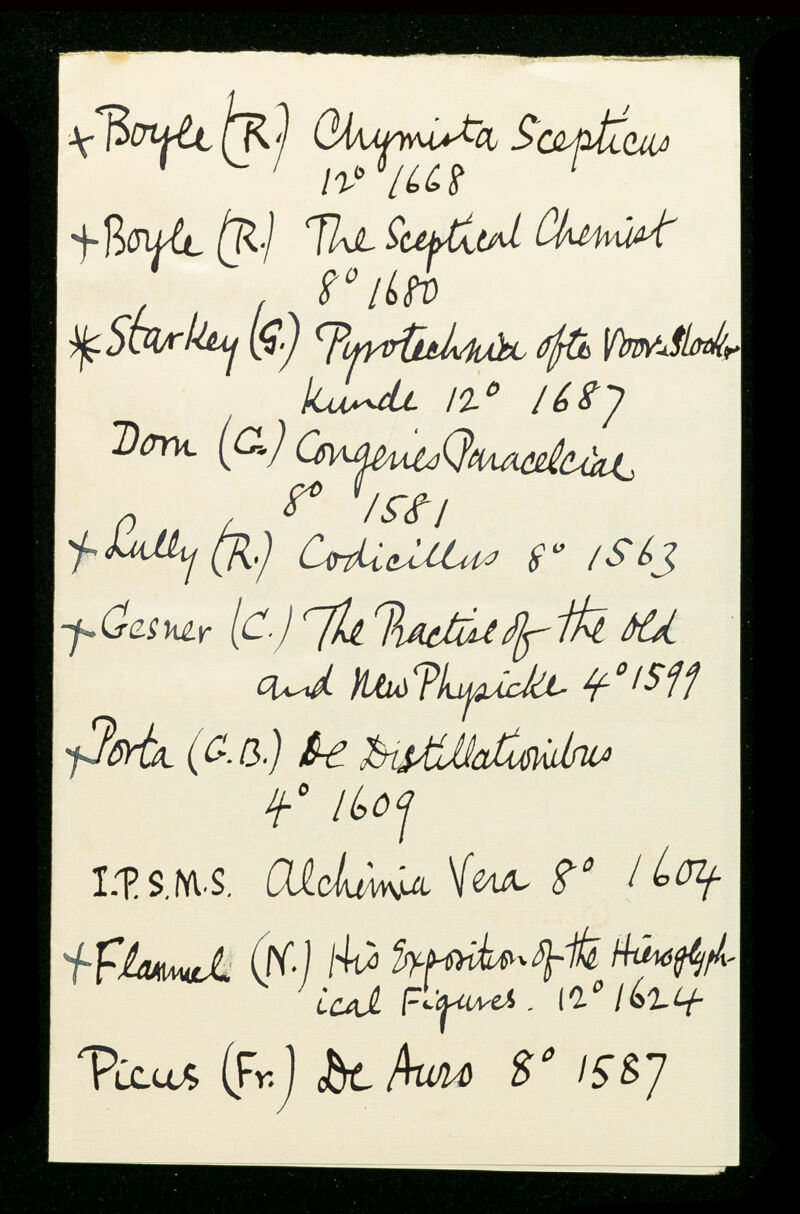 + Boyle (R.) Chymista Scepticus
12° 1668
+ Boyle (R.) The Sceptical Chemist
8° 1680
* Starkey (G.) Pyrotechnia ofte Voor-Stook-
kunde 12° 1687
Dorn (G.) Congeries Paracelciae
8° 1581
+ Lully (R.) Codicillus 8° 1563
+ Gesner (C.) The Practise of the old
and New Physicke 4° 1599
+ Porta (G.B.) De Distillationibus
4° 1609
I.P.S.M.S. Alchimia Vera 8° 1604
+ Flammel (N.) His Exposition of the Hieroglyph-
ical Figures. 12° 1624
Picus (Fr.) De Auro 8° 1587